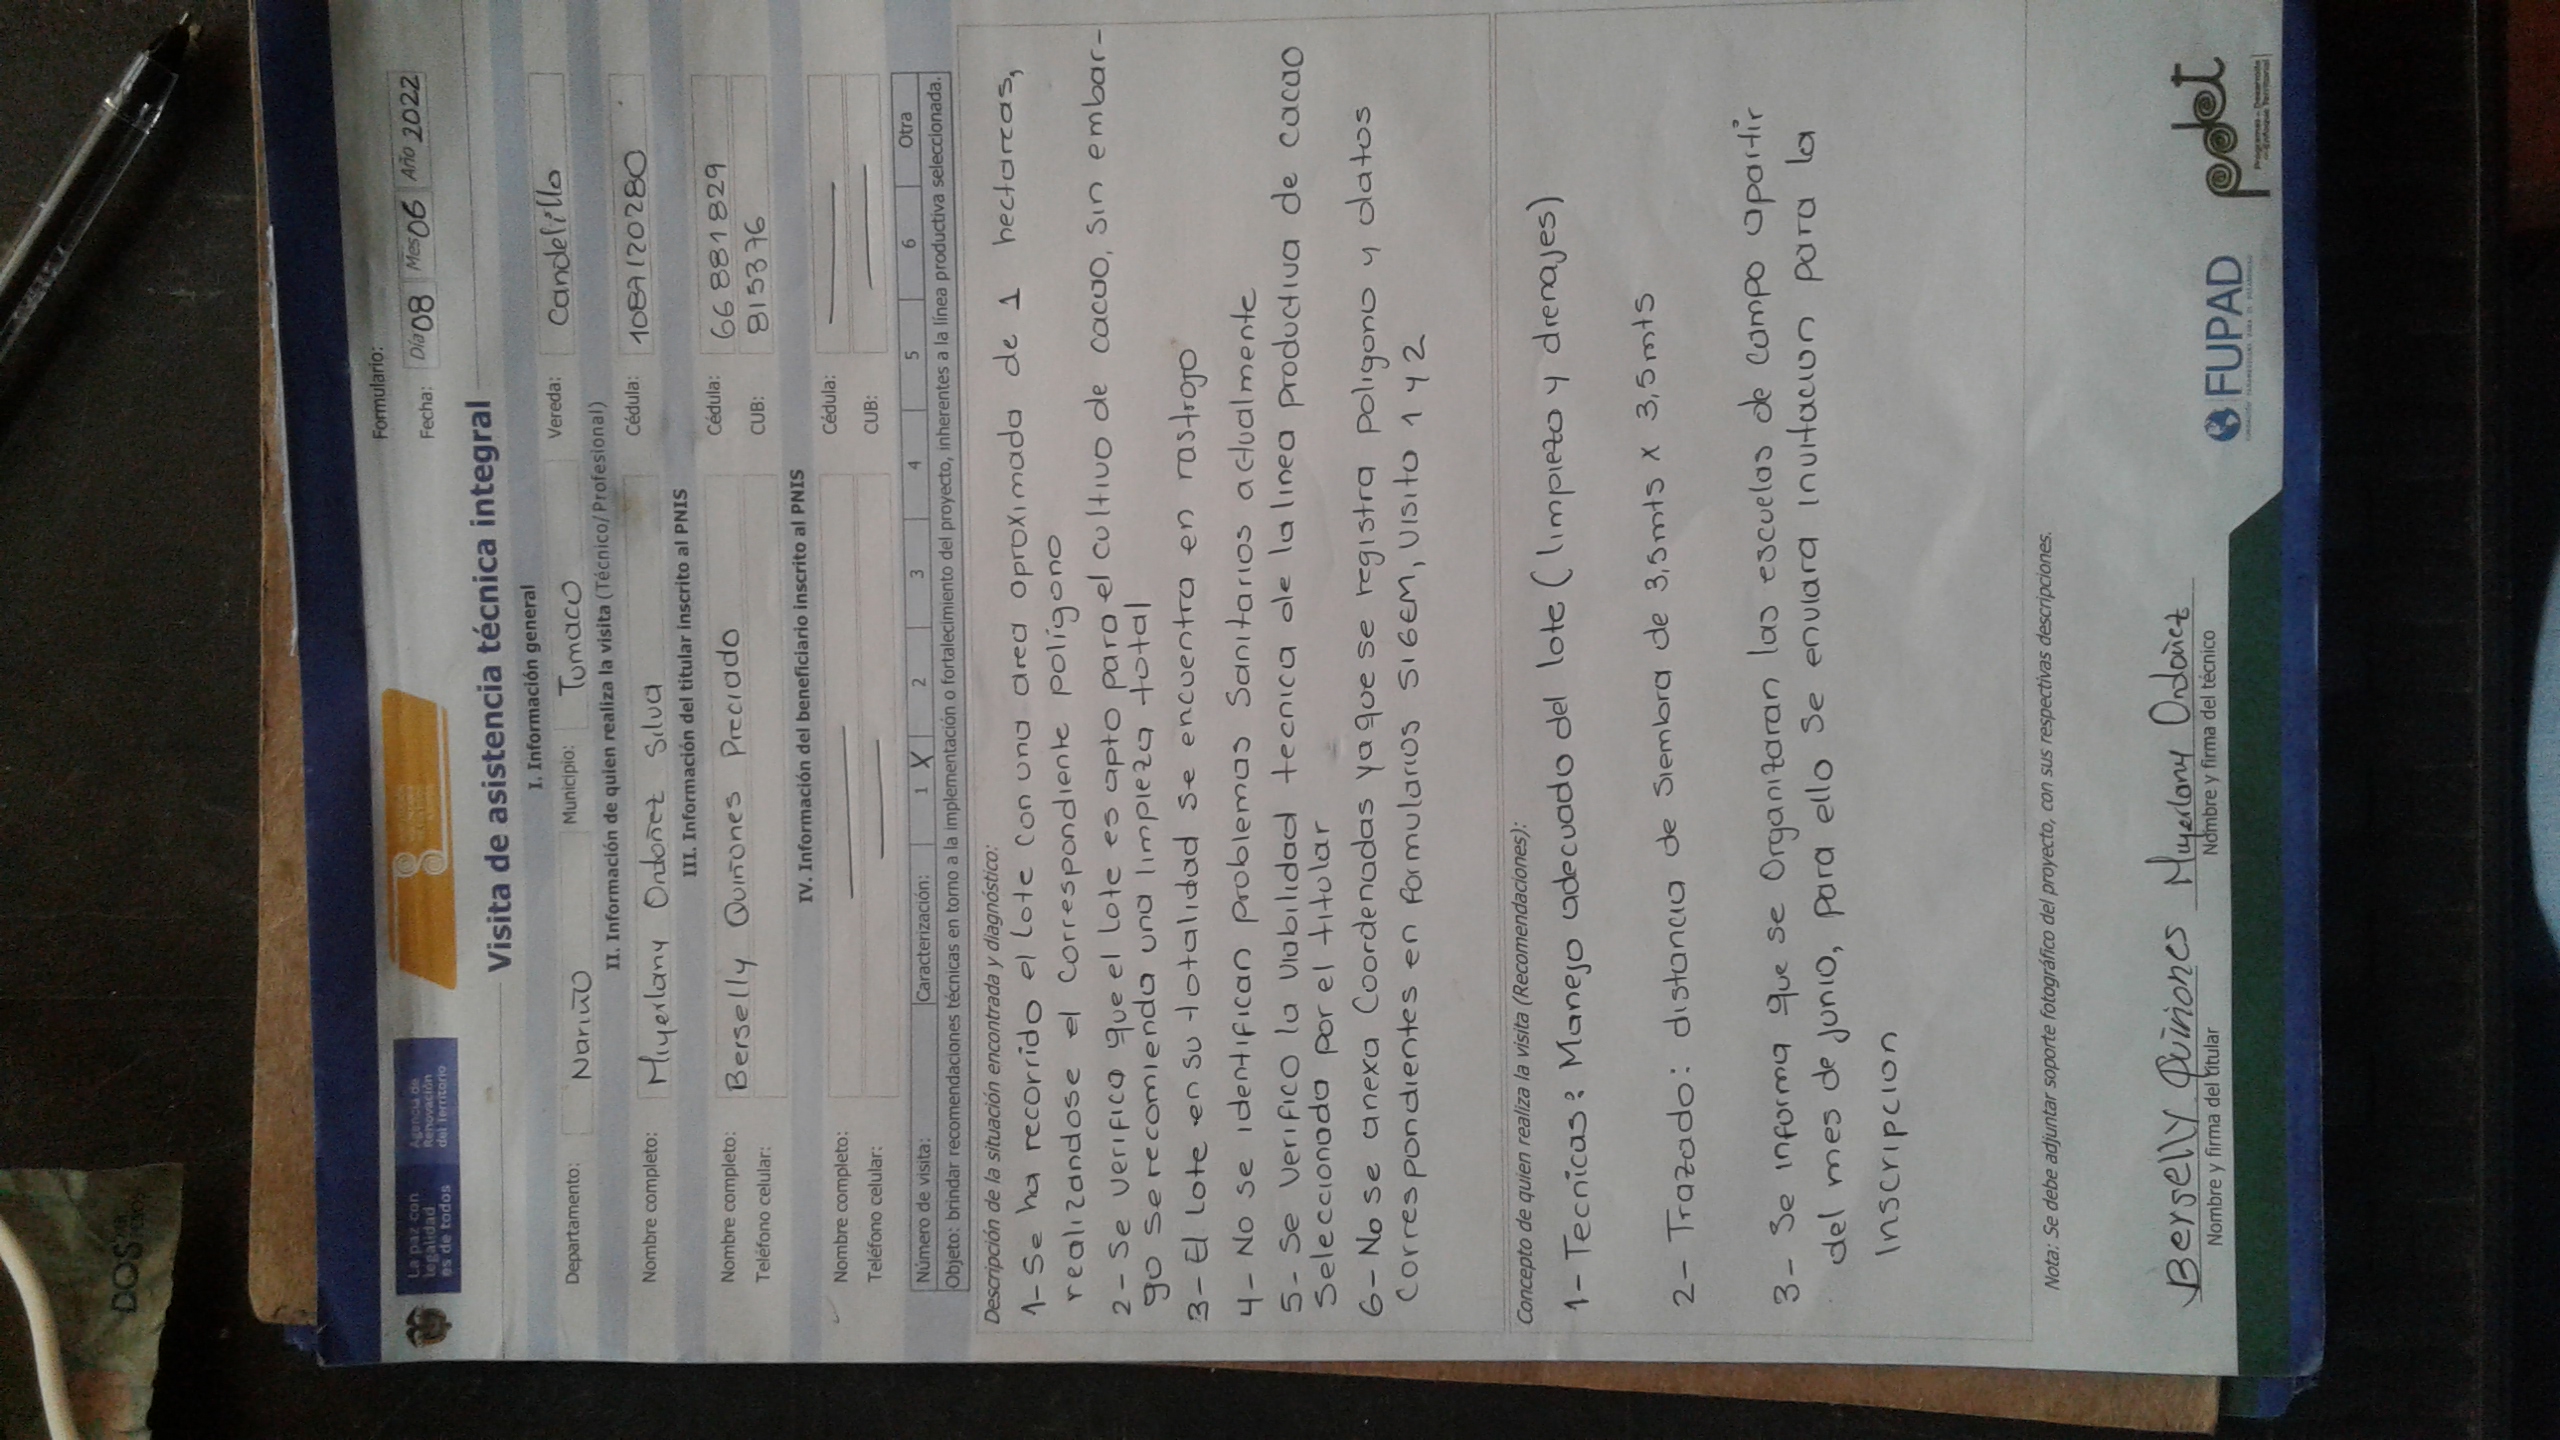 La paz con
legalidad
es de todos
Agencia de
Renovación
del Territorio
Formulario:
Fecha: Día 08 Mes 06 Año 2022
Visita de asistencia técnica integral
I. Información general
Departamento: Nariño Municipio: Tumaco Vereda: Candelillo
II. Información de quien realiza la visita (Técnico/Profesional)
Nombre completo: Miyerlany Ordoñez Silva Cédula: 1089120280
III. Información del titular inscrito al PNIS
Nombre completo: Berselly Quiñones Preciado Cédula: 66881829
Teléfono celular: CUB: 8153376
IV. Información del beneficiario inscrito al PNIS
Nombre completo: Cédula:
Teléfono celular: CUB:
Número de visita: Caracterización: 1 X 2 3 4 5 6 Otra
Objeto: brindar recomendaciones técnicas en torno a la implementación o fortalecimiento del proyecto, inherentes a la línea productiva seleccionada.
Descripción de la situación encontrada y diagnóstico:
1- Se ha recorrido el lote con una area aproximada de 1 hectareas,
realizandose el correspondiente polígono
2- Se verifica que el lote es apto para el cultivo de cacao, sin embar-
go se recomienda una limpieza total
3- El lote en su totalidad se encuentra en rastrojo
4- No se identifican problemas sanitarios actualmente
5- Se verifico la viabilidad tecnica de la linea productiva de cacao
seleccionada por el titular
6- No se anexa Coordenadas ya que se registra poligono y datos
correspondientes en formularios SIGEM, visita 1 y 2
Concepto de quien realiza la visita (Recomendaciones):
1- Tecnicas: Manejo adecuado del lote (limpieza y drenajes)
2- Trazado: distancia de siembra de 3,5mts x 3,5mts
3- Se informa que se Organizaran las escuelas de campo apartir
del mes de junio, para ello se enviara invitacion para la
inscripcion
Nota: Se debe adjuntar soporte fotográfico del proyecto, con sus respectivas descripciones.
Berselly Quiñones Miyerlany Ordoñez
Nombre y firma del titular Nombre y firma del técnico
FUPAD
pdet
Programas de Desarrollo
con Enfoque Territorial
DOS